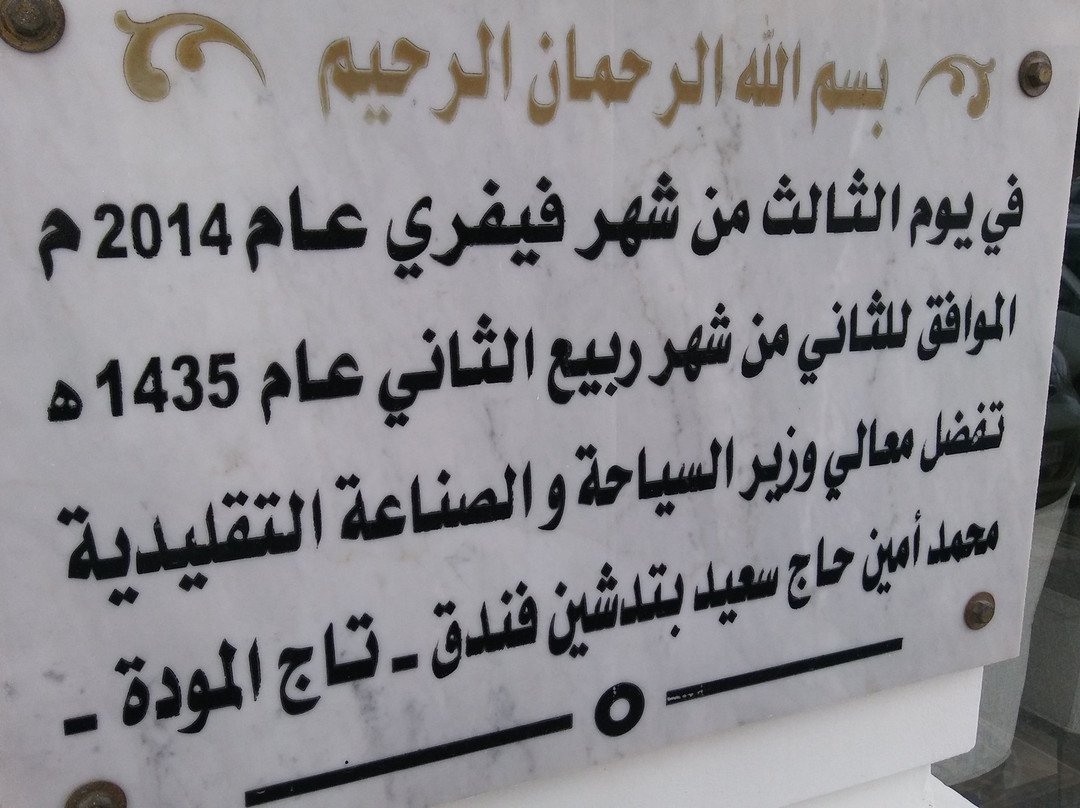 بسم الله الرحمان الرحيم
في يوم الثالث من شهر فيفري عام 2014 م
الموافق للثاني من شهر ربيع الثاني عام 1435 ه
تفضل معالي وزير السياحة و الصناعة التقليدية
محمد أمين حاج سعيد بتدشين فندق - تاج المودة -